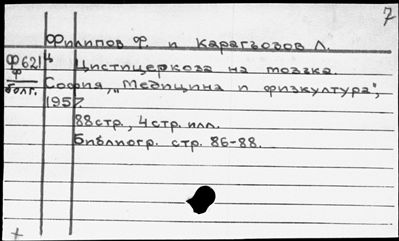 7
Филипов Ф. и Карагьозов Л.
Ф621 Ц
Ф
болг.
Цистицеркоза на мозъка.
София, „Медицина и физкултура",
1957
88 стр., 4 стр. илл.
Библиогр. стр. 86-88.